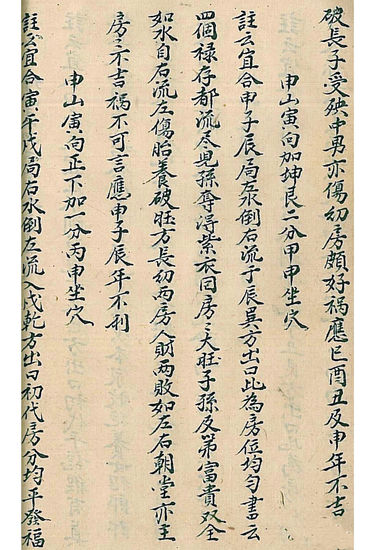 破長子受殃中男亦傷幼房頗好禍應巳酉丑及申年不吉
申山寅向加坤艮二分甲申坐穴
註云宜合申子辰局左水倒右流于辰巽方出口此為房位均勻書云
四個祿存都流尽兒孫專得紫衣回房々大旺子孫及第富貴双全
如水自右流左傷胎養破旺方長幼兩房人財兩敗如左右朝堂亦主
房々不吉禍不可言應申子辰年不利
申山寅向正下加一分丙申坐穴
註云宜合寅午戌局右水倒左流入戌乾方出口初代房分均平發福